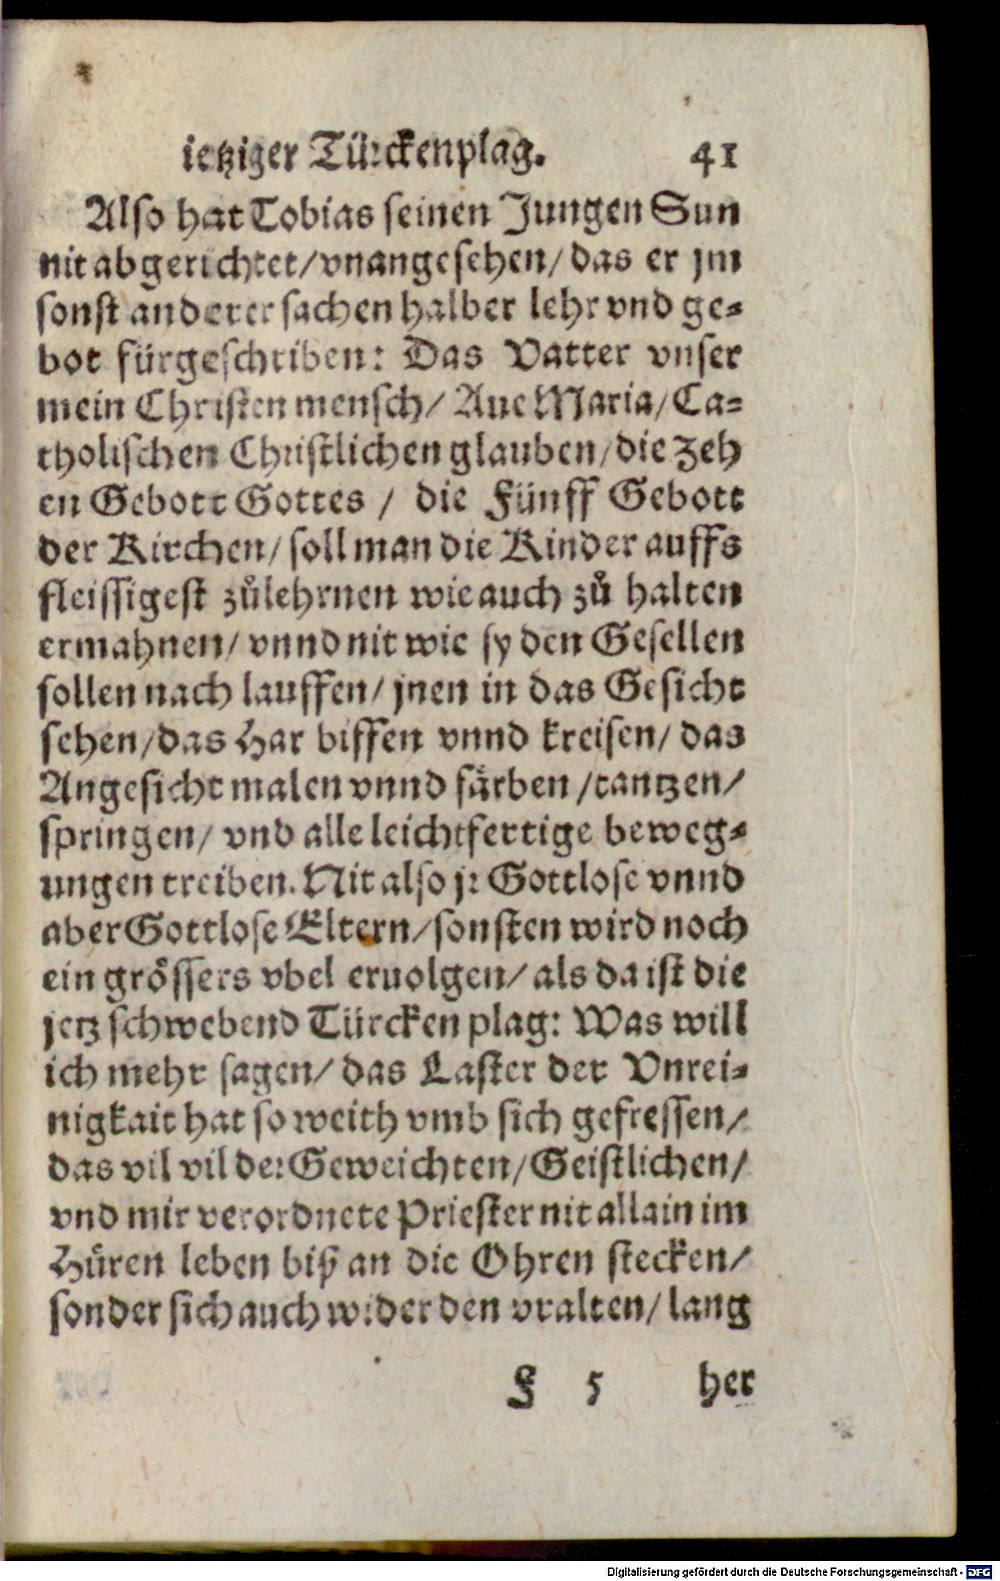 ietziger Türckenplag. 41
Also hat Tobias seinen Jungen Sun
nit abgerichtet/ vnangesehen/ das er jm
sonst anderer sachen halber lehr vnd ge-
bot fürgeschriben: Das Vatter vnser
mein Christen mensch/ Aue Maria/ Ca-
tholischen Christlichen glauben/ die zeh
en Gebott Gottes / die Fünff Gebott
der Kirchen/ soll man die Kinder auffs
fleissigest zůlehrnen wie auch zů halten
ermahnen/ vnnd nit wie sy den Gesellen
sollen nach lauffen/ jnen in das Gesicht
sehen/ das Har biffen vnnd kreisen/ das
Angesicht malen vnnd färben / tantzen/
springen/ vnd alle leichtfertige beweg-
ungen treiben. Nit also jr Gottlose vnnd
aber Gottlose Eltern/ sonsten wird noch
ein grössers vbel eruolgen/ als da ist die
jetz schwebend Türcken plag: Was will
ich mehr sagen/ das Laster der Vnrei-
nigkait hat so weith vmb sich gefressen/
das vil vil der Geweichten/ Geistlichen/
vnd mir verordnete Priester nit allain im
Hůren leben biß an die Ohren stecken/
sonder sich auch wider den vralten/ lang
F 5 her
Digitalisierung gefördert durch die Deutsche Forschungsgemeinschaft - DFG